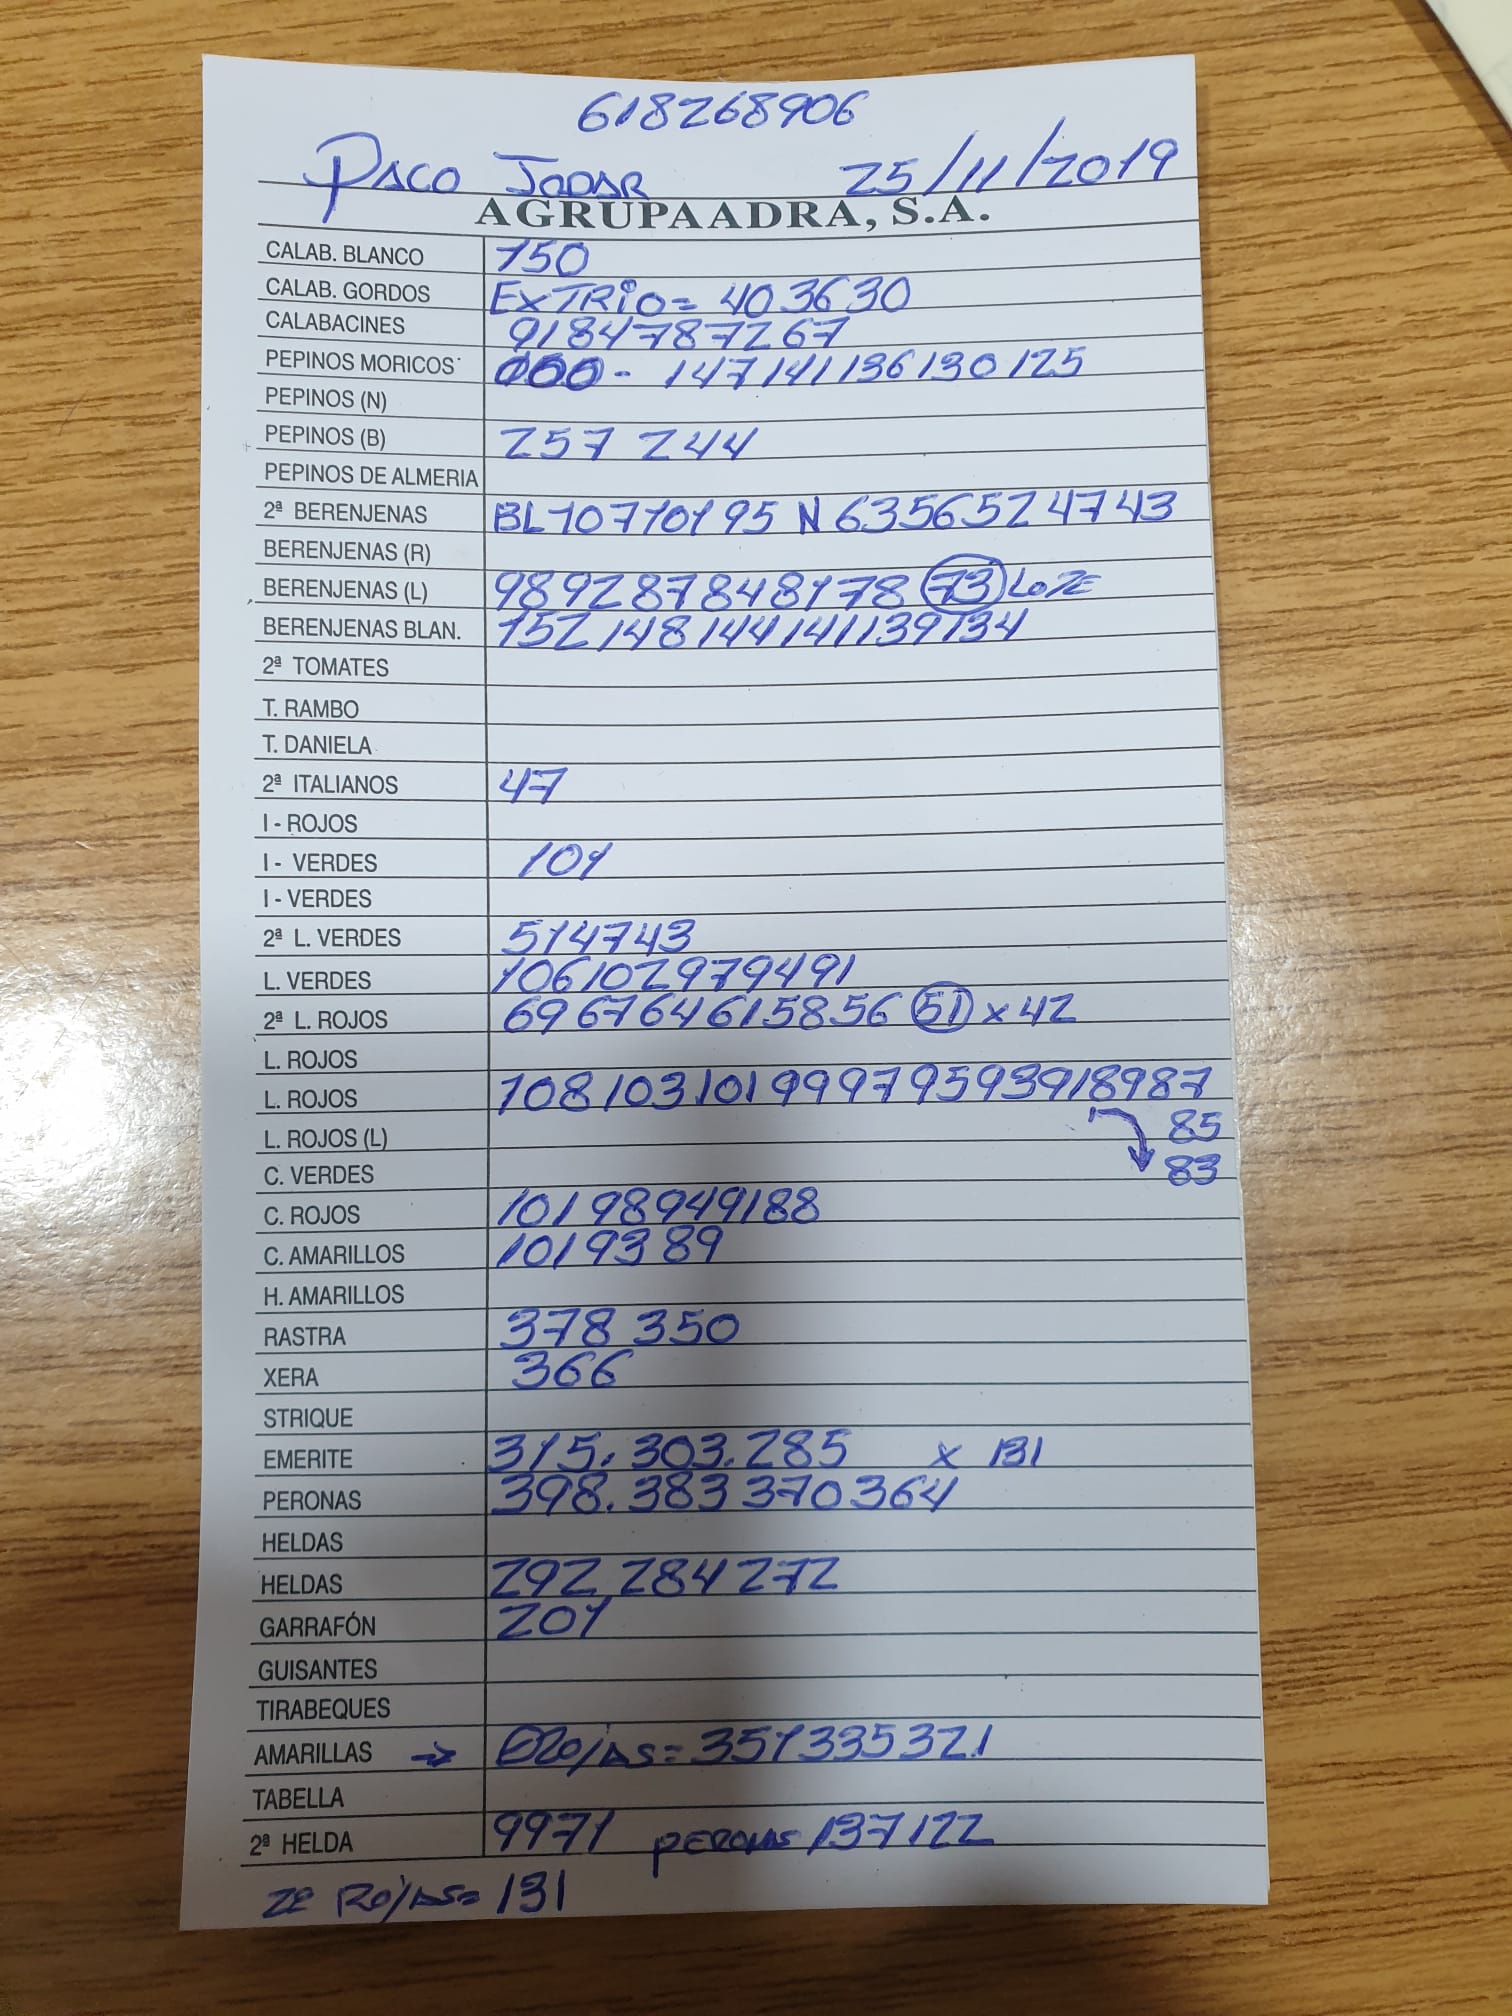 618268906
PACO JODAR 25/11/2019
AGRUPAADRA, S.A.
CALAB. BLANCO 150
CALAB. GORDOS EXTRIO= 40 36 30
CALABACINES 91 84 78 72 67
PEPINOS MORICOS - 147 141 136 130 125
PEPINOS (N)
PEPINOS (B) 257 244
PEPINOS DE ALMERIA
2ª BERENJENAS BL 107 101 95 N 63 56 52 47 43
BERENJENAS (R)
BERENJENAS (L) 98 92 87 84 81 78 73
BERENJENAS BLAN. 152 148 144 141 139 134
2ª TOMATES
T. RAMBO
T. DANIELA
2ª ITALIANOS 47
I - ROJOS
I - VERDES 101
I - VERDES
2ª L. VERDES 51 47 43
L. VERDES 106 102 97 94 91
2ª L. ROJOS 69 67 64 61 58 56 51 x 42
L. ROJOS
L. ROJOS 108 103 101 99 97 95 93 91 89 87
85
L. ROJOS (L)
83
C. VERDES
C. ROJOS 101 98 94 91 88
C. AMARILLOS 101 93 89
H. AMARILLOS
RASTRA 378 350
XERA 366
STRIQUE
EMERITE 315. 303. 285 x 131
PERONAS 398. 383 370 364
HELDAS
HELDAS 292 284 272
GARRAFÓN 201
GUISANTES
TIRABEQUES
AMARILLAS → = 351 335 321
TABELLA
2ª HELDA 99 71 PERONAS 137 122
2ª ROJAS= 131